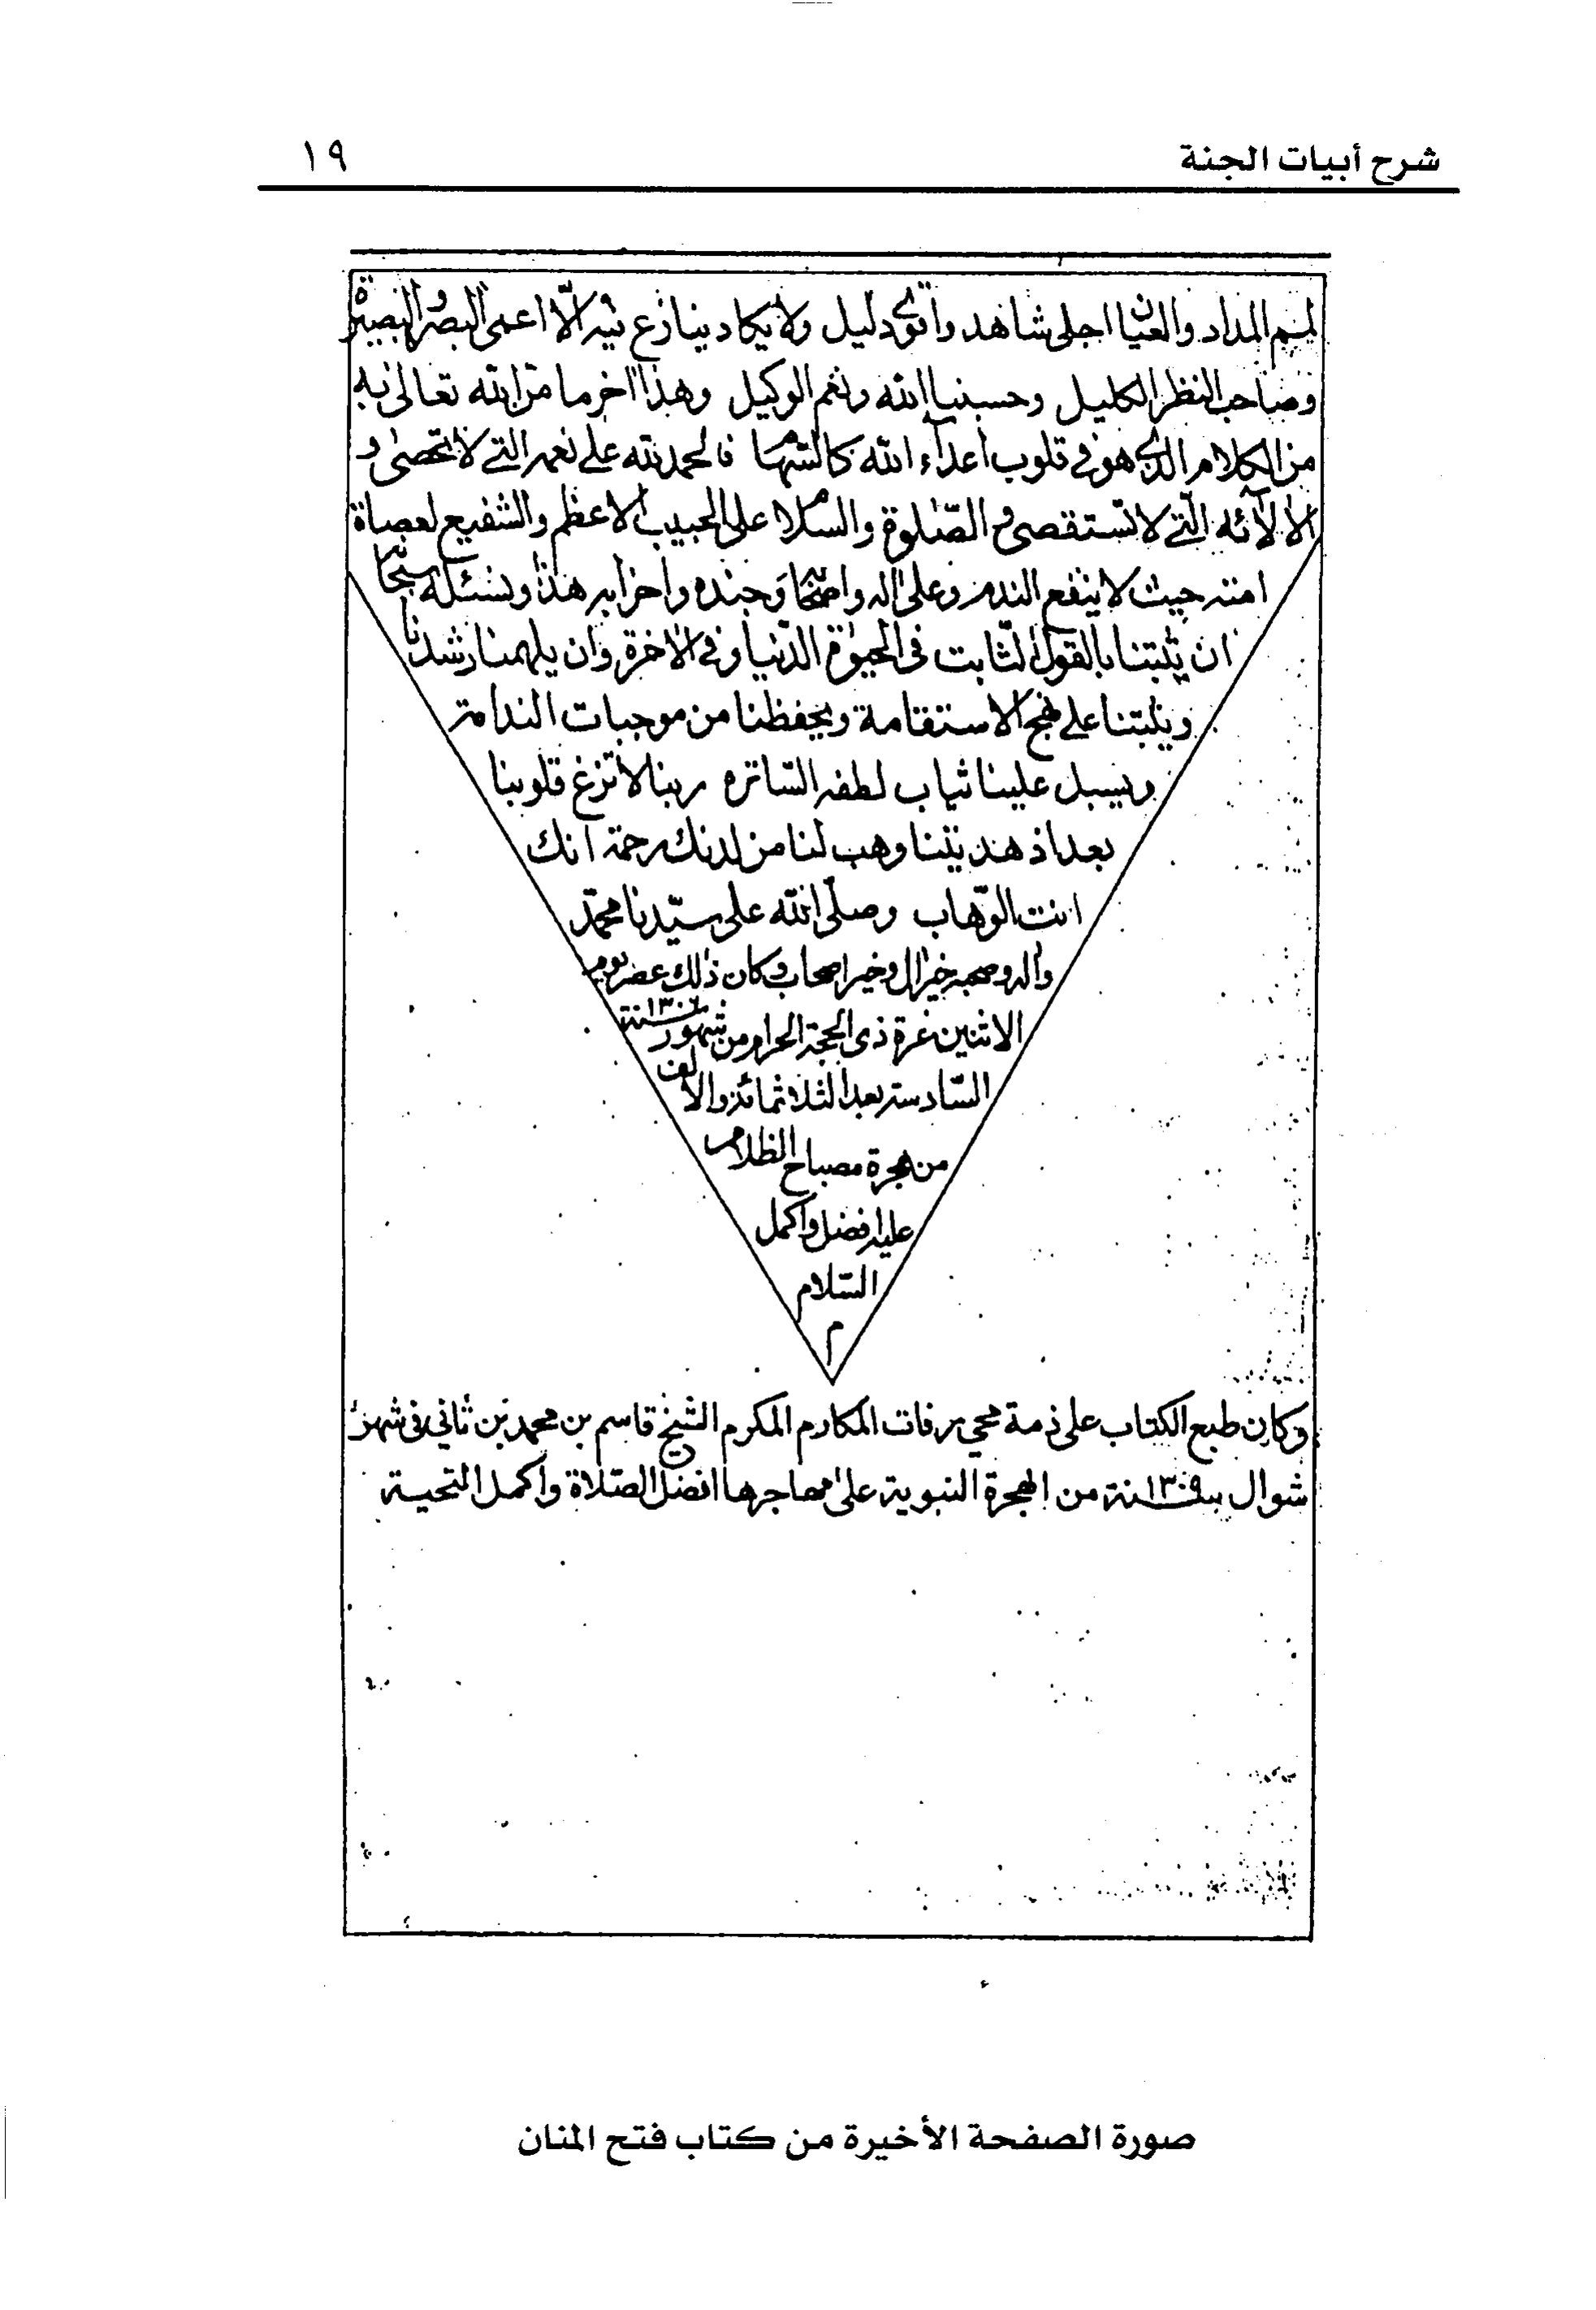 شرح أبيات الجنة
١٩
المداد والعيان اجلى شاهد واقوى دليل ولا يكاد ينازع فيه الّا اعمى البصر والبصيرة
وصاحب النظر الكليل وحسبنا الله ونعم الوكيل وهذا اخر ما منّ الله تعالى به
من الكلام الذى هو فى قلوب اعداء الله كالسّهام فالحمد لله على نعمه التى لا تحصى و
الآلائه التى لا تستقصى والصّلوة والسّلام على الحبيب الاعظم والشفيع لعصاة
امته حيث لا ينفع الندم وعلى اله واصحابه وجنده واحزابه هذا ونسئله سبحانه
ان يثبتنا بالقول الثابت فى الحيوة الدّنيا وفى الاخرة وان يلهمنا رشدنا
ويثبتنا على نهج الاستقامة ويحفظنا من موجبات الندامة
ويسبل علينا ثياب لطفه السّاتره ربنا لا تزغ قلوبنا
بعد اذ هديتنا وهب لنا من لدنك رحمة انك
انت الوّهاب وصلّى الله على سيّدنا محمّد
واله وصحبه خير ال وخير اصحاب وكان ذلك عصر يوم
الاثنين غرة ذى الحجة الحرام من شهور سنة ١٣٠٦
السّادسة بعد الثلاثمائة والالف
من هجرة مصباح الظلام
عليه افضل واكمل
السّلام
م
وكان طبع الكتاب على ذمة محي رفات المكارم المكرم الشيخ قاسم بن محمد بن ثاني فى شهر
شوال سنة ١٣٠٩ من الهجرة النبوية على مهاجرها افضل الصّلاة واكمل التحية
صورة الصفحة الأخيرة من كتاب فتح المنان